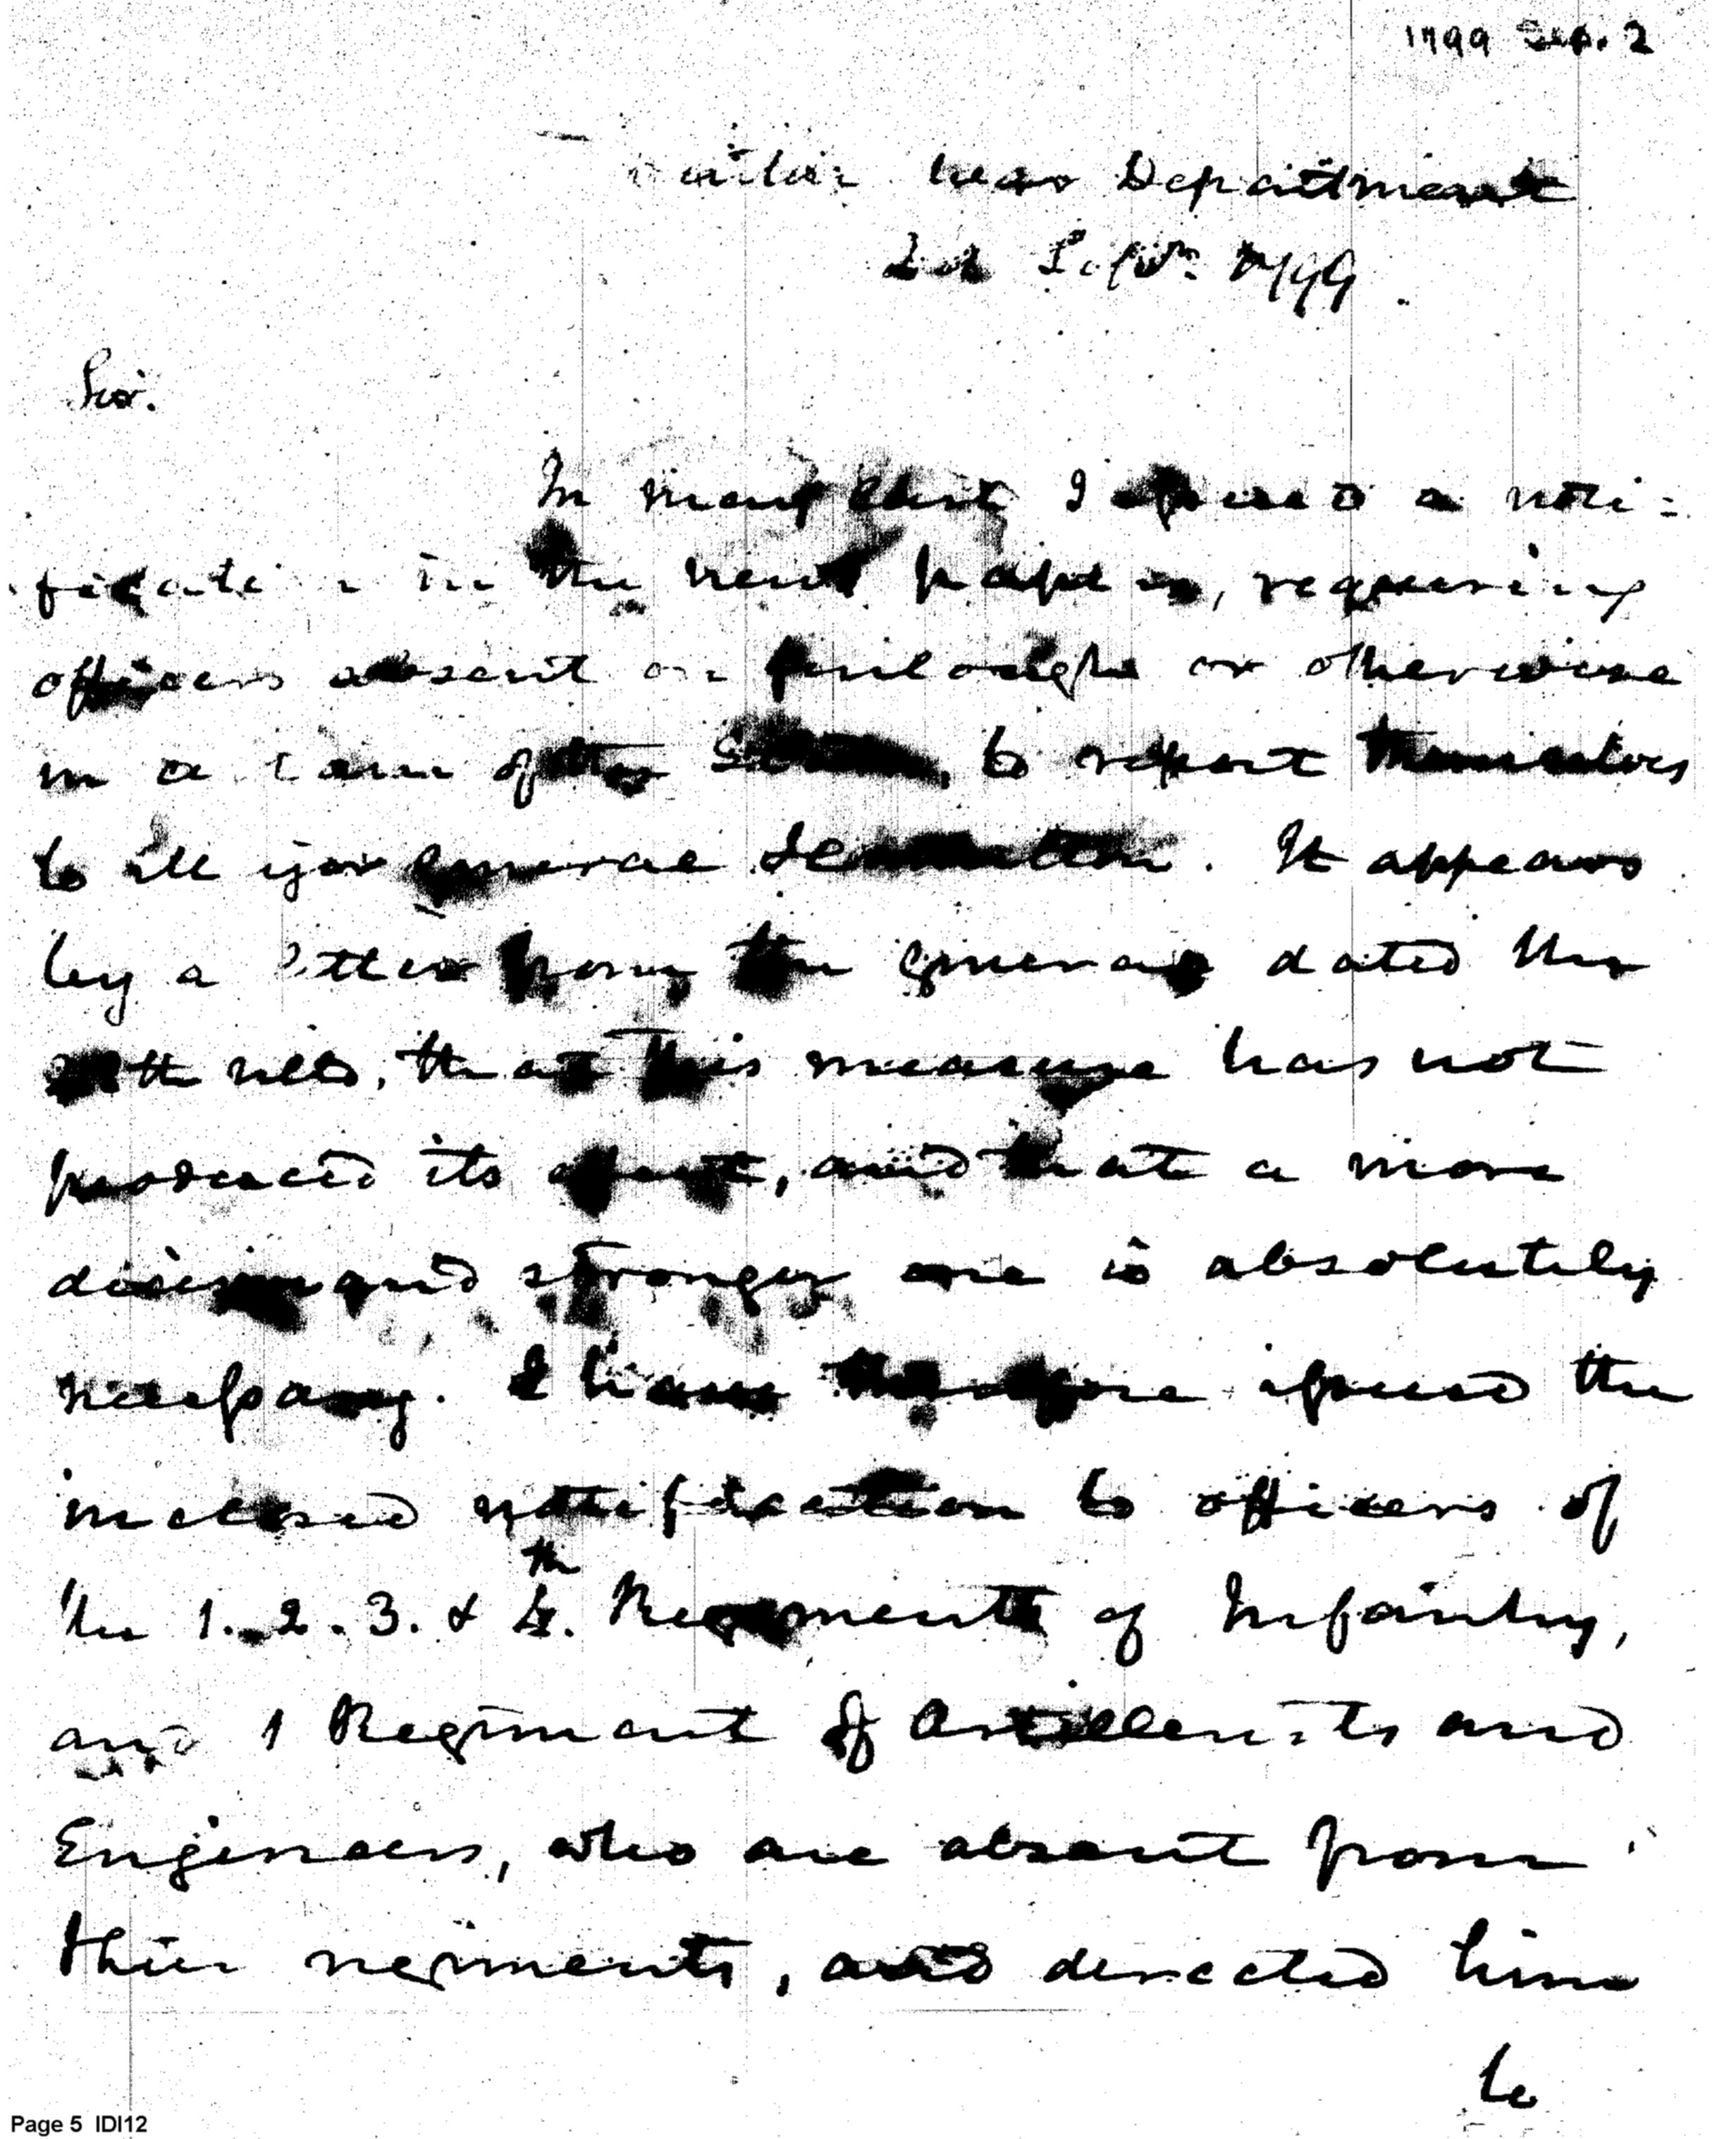 1799 Sep. 2
War Department
2d Septr. 1799.
Sir.
In May last I issued a noti=
fication in the news papers, requiring
officers absent on furlough or otherwise
in a of the to report themselves
to Major General Hamilton. It appears
by a letter from the General dated the
th ulto, that this measure has not
produced its effect, and that a more
decisive and stronger one is absolutely
necessary. I have therefore issued the
inclosed notification to officers of
the 1. 2. 3. & 4.th Regiments of Infantry,
and 1 Regiment of Artillerists and
Engineers, who are absent from
their regiments, and directed him
to
Page 5 IDI12